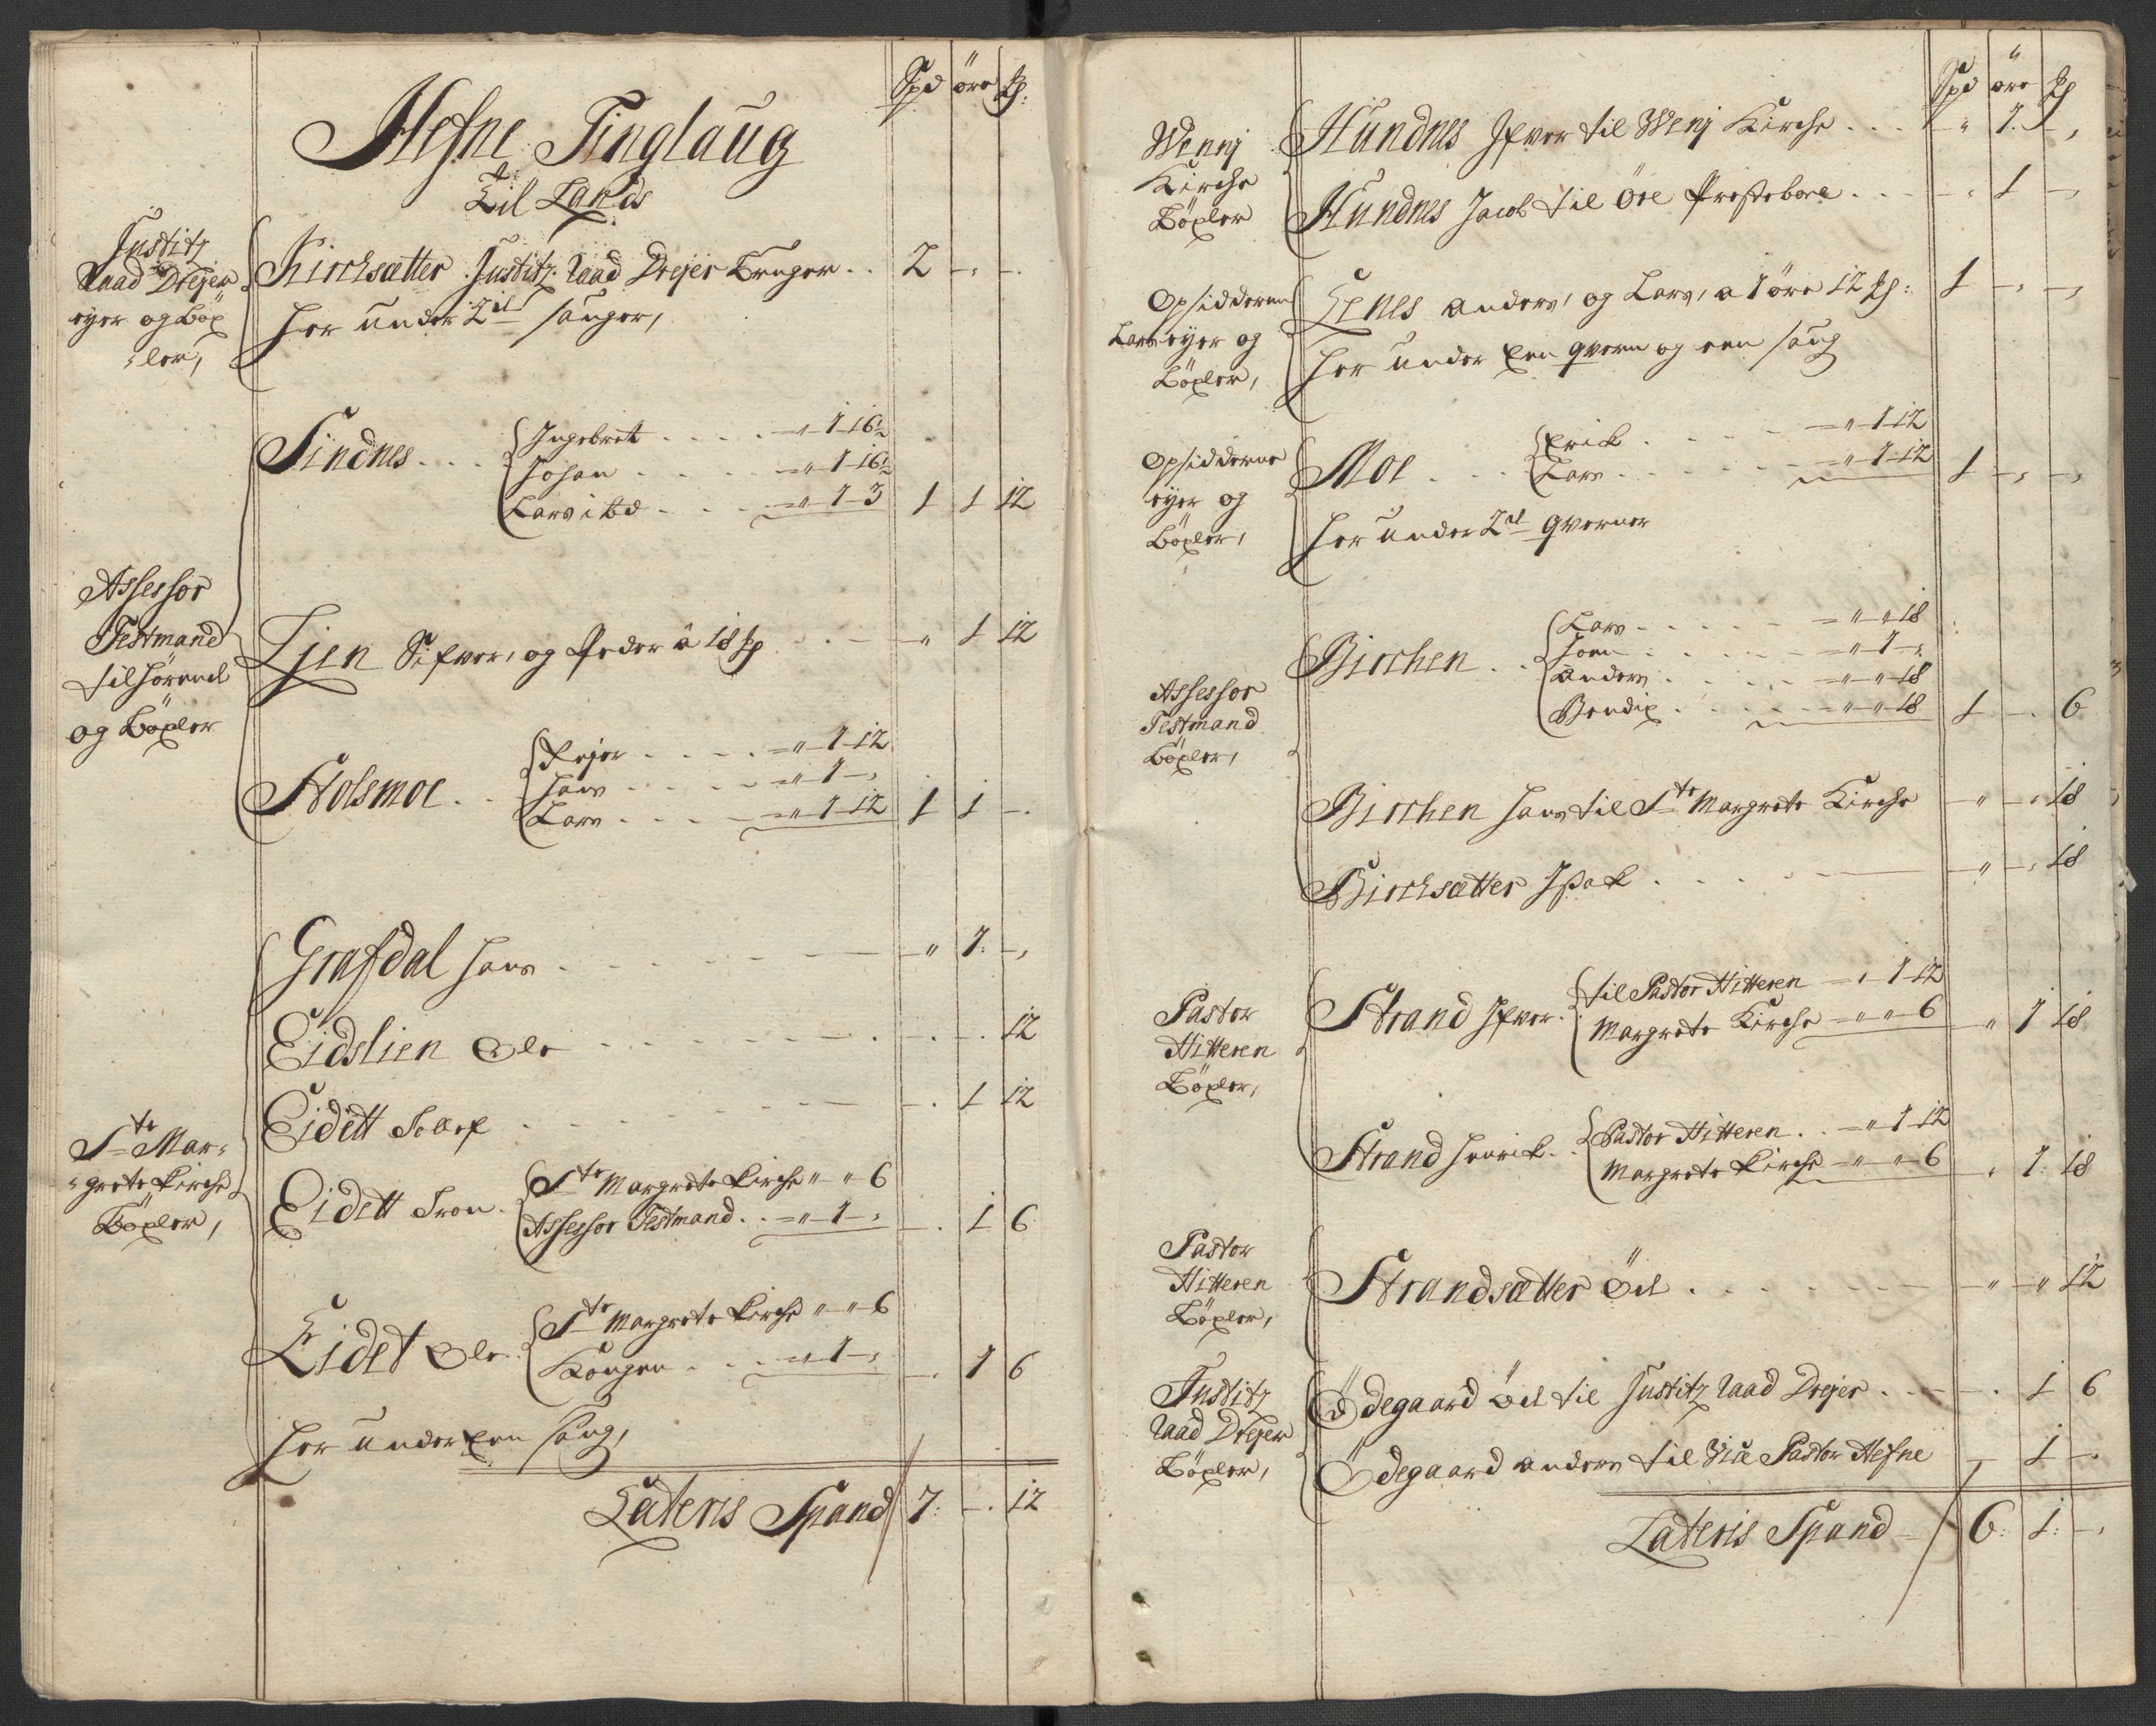 Spd öre ₰:
Hefne Tinglaug
Til Lands
Justitz
Raad Drejer
eyer og Böx
=ler,
Kirchsætter Justitz Raad Drejer bruger . . 2 - -
her under 2de sauger,
Sindnes . . . Ingebret . . . . - " 1 - 16½
Johan . . . . - " 1 - 16½
Lars ibd . . . - " 1 - 3 1 1 12
Assessor
Testmand
tilhörende
og Böxler
Lien Sifver, og Peder â 18 ₰ . . . - " 1 12
Stolsmoe . . Pejer . . . . - " 1 - 12
Hans . . . . - " 1 -
Lars . . . . - " 1 - 12 1 1 -
Grafdal Hans . . . . . . - " 1 -
Eidslien Ole . . . . . . - - 12
Eidett Tollef . . . . . . - 1 12
Ste Mar=
=grete Kirche
Böxler,
Eidett Tron . Ste Margrete Kirche " " 6
Assessor Testmand . . - " 1 - - 1 6
Eidet Ole . Ste Margrete Kirche " " 6
Kongen . . . - " 1 - - 1 6
her under een saug,
Lateris Spand 7 - 12
Spd öre ₰
Wenj
Kirche
Böxler
Hundnes Ifver til Wenj Kirche . . . - " 1 -
Hundnes Jacob til Öre Prestebore . . . - " 1 -
Opsidderen
Lars eyer og
Böxler,
Lenes anders, og Lars, a 1 öre 12 ₰: 1 - -
her under een qvern og een saug
Opsidderne
eyer og
Böxler,
Moe . . . Erick . . . . . - " 1 - 12
Lars . . . . . - " 1 - 12 1 - -
her under 2de qverner
Assessor
Testmand
Böxler,
Birchen . . Lars . . . . . - " " 18
Joen . . . . . - " 1 -
anders . . . . . - " " 18
Bendix . . . . - " " 18 1 - 6
Birchen Hans til Ste Margrete Kirche - " - 18
Birchsætter Isak . . . . . - " - 18
Pastor
Hitteren
Böxler,
Strand Ifver . til Pastor Hitteren - " 1 - 12
Margrete Kirche - " " 6 - " 1 18
Strand Henrick . . Pastor Hitteren . . - " 1 - 12
Margrete Kirche - " " 6 " 1 18
Pastor
Hitteren
Böxler,
Strandsætter Öd . . . . . . - " - " 12
Justitz
Raad Drejer
Böxler,
Ödegaard öd til Justitz Raad Drejer . . . - 1 6
Ödegaard anders til Vice Pastor Hefne - 1 -
Lateris Spand - 6: 1: -